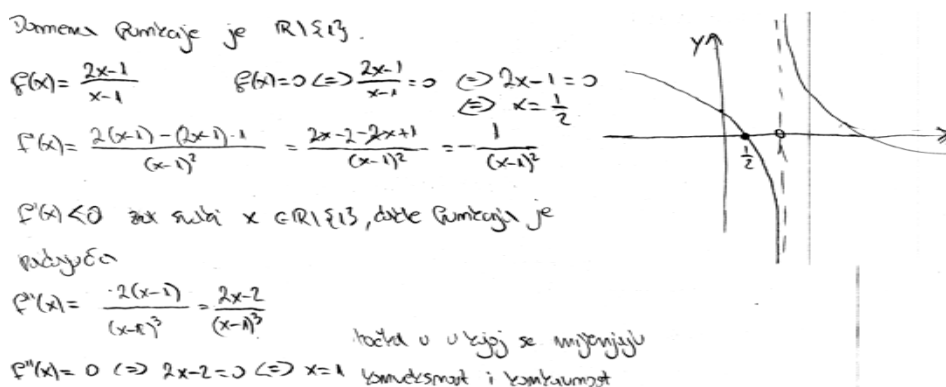 Domena funkcije je ℝ\{1}.
f(x) = (2x-1)/(x-1)   f(x)=0 <=> (2x-1)/(x-1) = 0 <=> 2x-1=0
<=> x = 1/2
f'(x) = (2(x-1) - (2x-1)·1)/(x-1)² = (2x-2-2x+1)/(x-1)² = -1/(x-1)²
f'(x) < 0 za svaki x ∈ ℝ\{1}, dakle funkcija je
padajuća
f''(x) = 2(x-1)/(x-1)³ = (2x-2)/(x-1)³
f''(x) = 0 <=> 2x-2=0 <=> x=1
točka u kojoj se mijenjaju
konveksnost i konkavnost
y
1/2